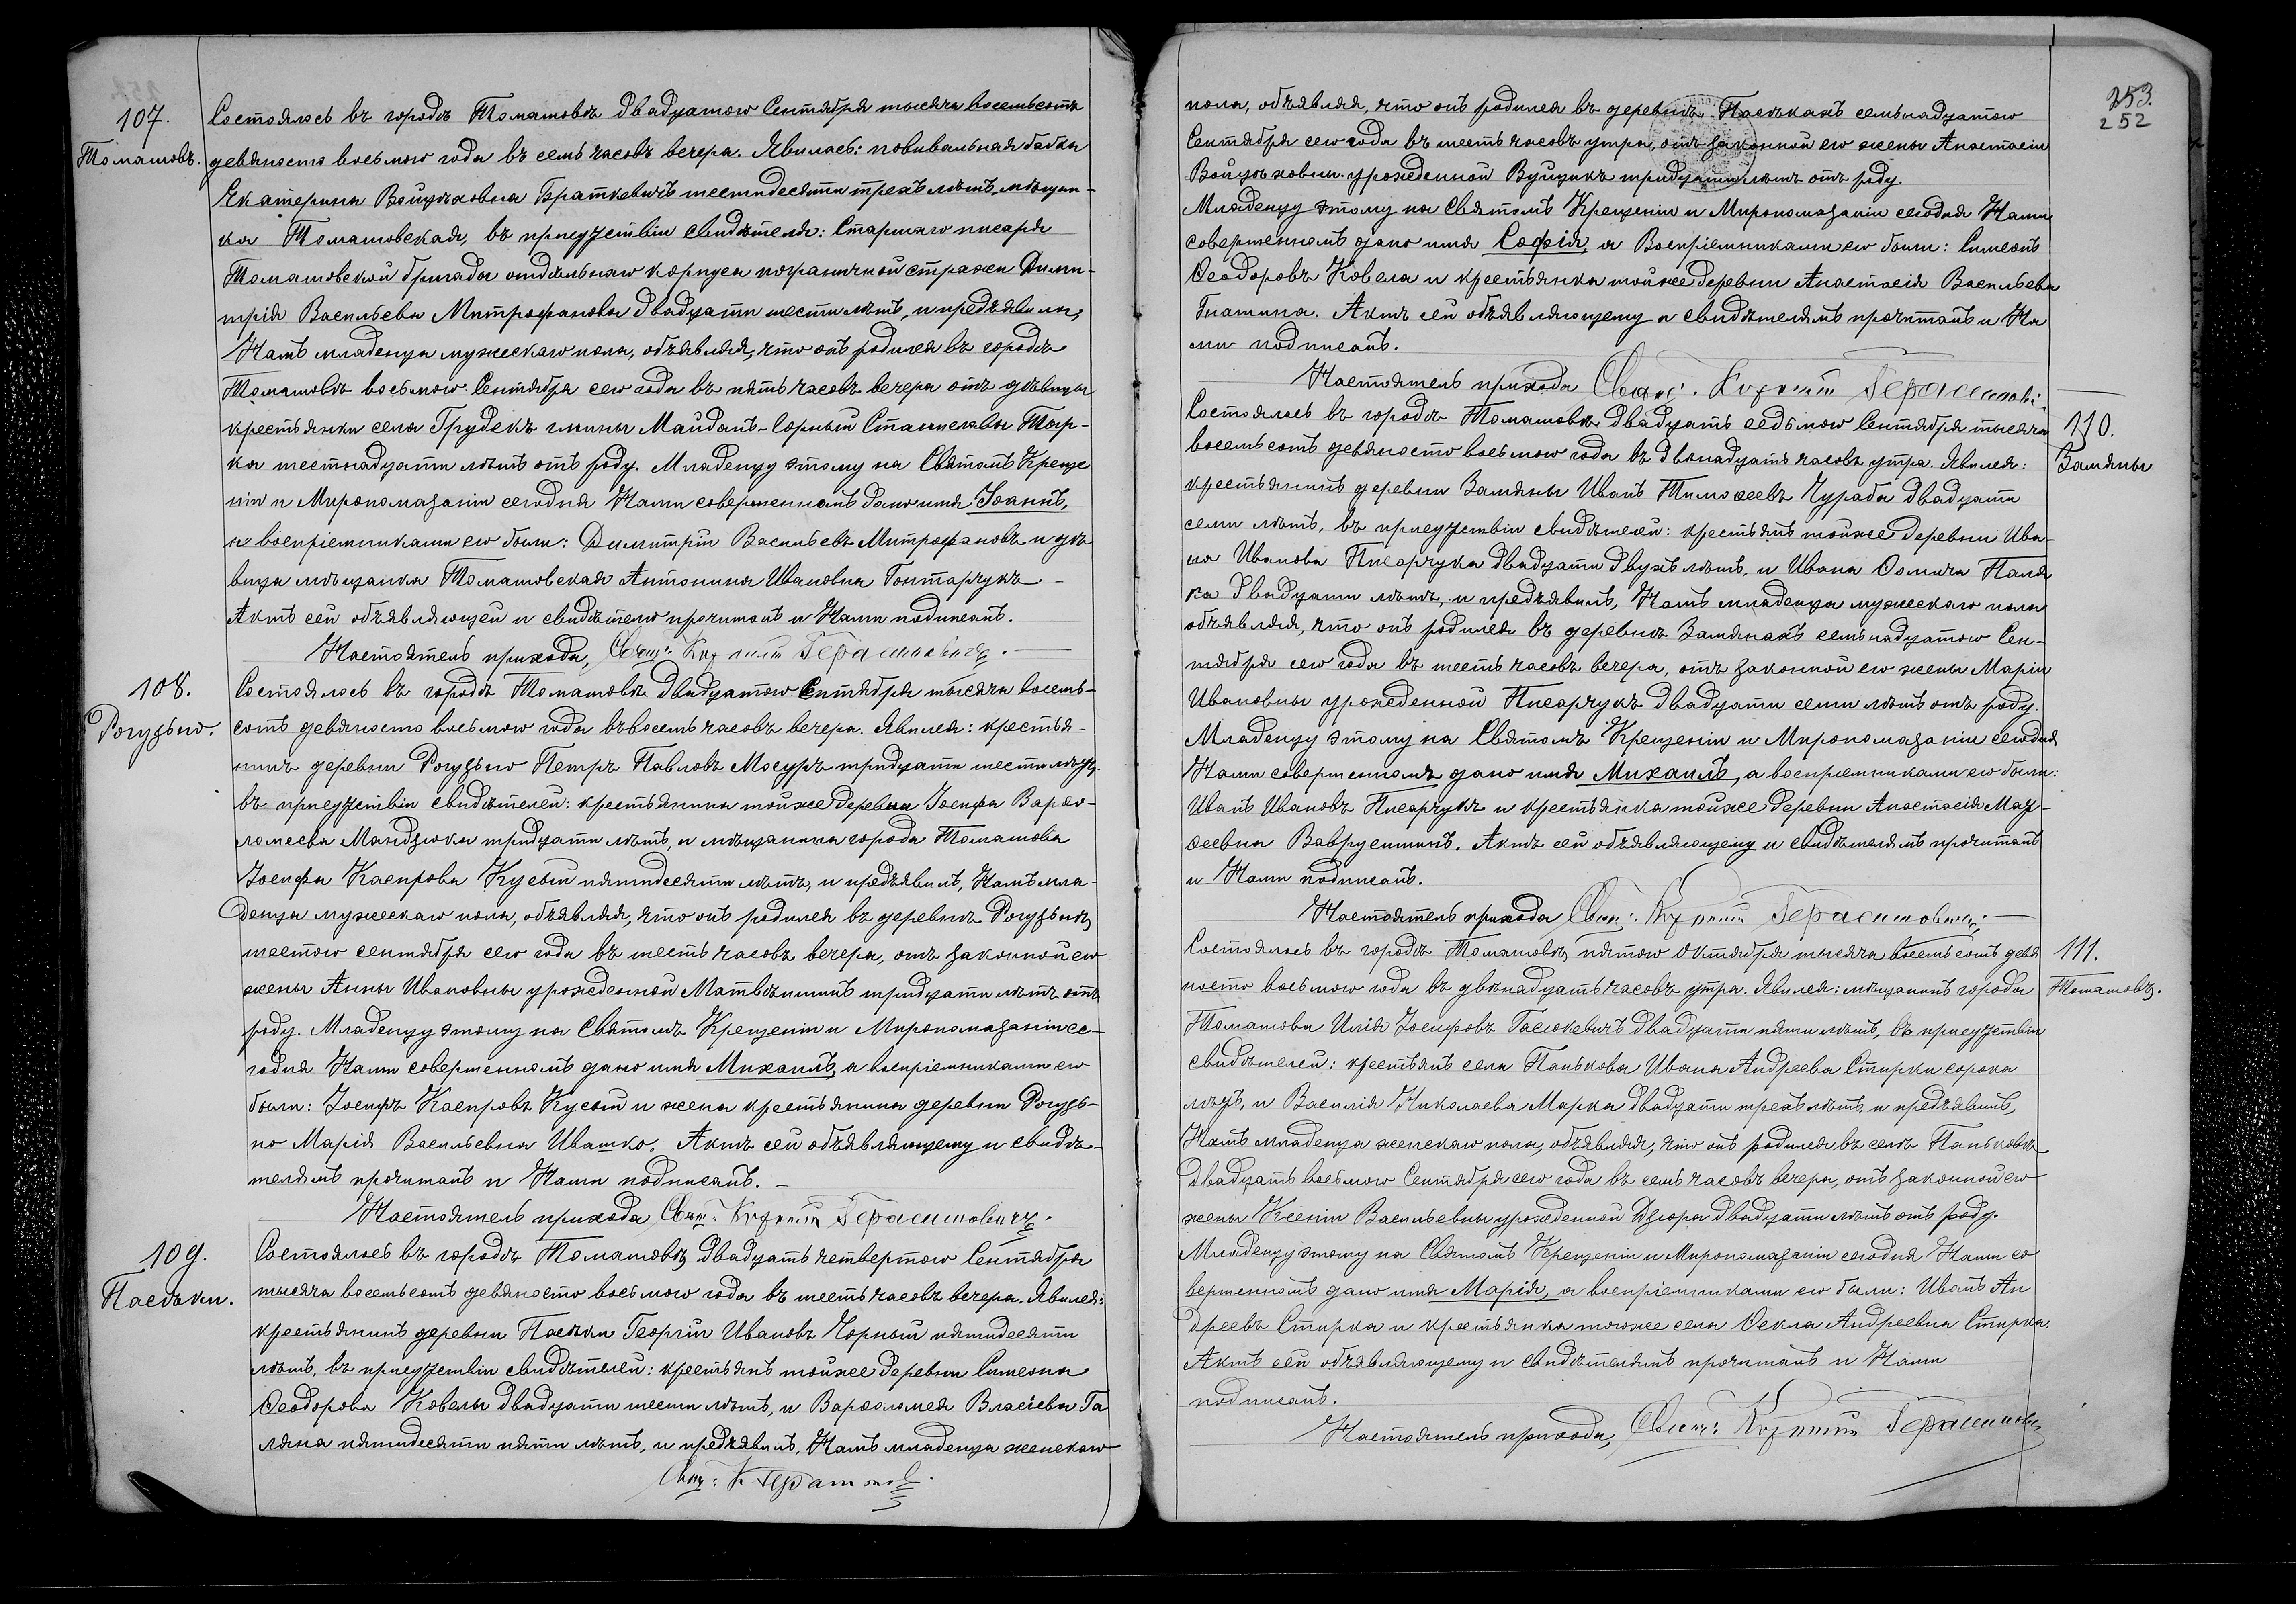 107.
Томашовъ.
Состоялось въ городѣ Томашовѣ двадцатого Сентября тысяча восемьсотъ
девяносто восьмого года въ семь часовъ вечера. Явилась: повивальная бабка
Екатерина Войцѣховна Браткевичъ шестидесяти трехъ лѣтъ, мѣщан-
ка Томашовская, въ присутствіи свидѣтеля: Старшаго писаря
Томашовской бригады отдѣльнаго корпуса пограничной стражи Дими-
трія Васильева Митрофанова двадцати шести лѣтъ, и предъявила,
Намъ младенца мужескаго пола, объявляя, что онъ родился въ городѣ
Томашовѣ восьмого Сентября сего года въ пять часовъ вечера отъ дѣвицы
крестьянки села Грудекъ гмины Майданъ-Горный Станиславы Тор-
ка шестнадцати лѣтъ отъ роду. Младенцу этому на Святомъ Креще
ніи и Миропомазаніи сегодня Нами совершенномъ дано имя Іоаннъ,
а воспріемниками его были: Димитрій Васильевъ Митрофановъ и дѣ
вица мѣщанка Томашовская Антонина Ивановна Гонтарчукъ.-
Актъ сей объявляющей и свидѣтелю прочитанъ и Нами подписанъ.
Настоятель прихода, Свящ:
108.
Рогузьно.
Состоялось въ городѣ Томашовѣ двадцатого Сентября тысяча восемь-
сотъ девяносто восьмого года въ восемь часовъ вечера. Явился: крестья-
нинъ деревни Рогузьно Петръ Павловъ Мосуръ тридцати шести лѣтъ,
въ присутствіи свидѣтелей: крестьянина тойже деревни Іосифа Варѳо-
ломеева Мандзюка тридцати лѣтъ, и мѣщанина города Томашова
Іосифа Каспрова Кусый пятидесяти лѣтъ, и предъявилъ, Намъ мла-
денца мужескаго пола, объявляя, что онъ родился въ деревнѣ Рогузьнѣ,
шестого сентября сего года въ шесть часовъ вечера, отъ законной его
жены Анны Ивановны урожденной Матвѣишинъ тридцати лѣтъ отъ
роду. Младенцу этому на Святомъ Крещеніи и Миропомазаніи се-
годня Нами совершенномъ дано имя Михаилъ, а воспріемниками его
были: Іосифъ Каспровъ Кусый и жена крестьянина деревни Рогузь-
но Марія Васильевна Ивашко. Актъ сей объявляющему и свидѣ-
телямъ прочитанъ и Нами подписанъ. -
Настоятель прихода Свящ: Герасимовичъ.
109.
Пасѣки.
Состоялось въ городѣ Томашовѣ, двадцать четвертого Сентября
тысяча восемьсотъ девяносто восьмого года въ шесть часовъ вечера. Явился:
крестьянинъ деревни Пасѣки Георгій Ивановъ Чорный пятидесяти
лѣтъ, въ присутствіи свидѣтелей: крестьянъ тойже деревни Симеона
Ѳеодорова Ковелы двадцати шести лѣтъ, и Варѳоломея Власіева Га
ляна пятидесяти пяти лѣтъ, и предъявилъ, Намъ младенца женскаго
Свящ: К
253.
252
пола, объявляя, что онъ родился въ деревнѣ Пасѣкахъ семьнадцатого
Сентября сего года въ шесть часовъ утра, отъ законной его жены Анастасіи
Войцѣховны урожденной Вуйцикъ тридцати лѣтъ отъ роду.
Младенцу этому на Святомъ Крещеніи и Миропомазаніи сегодня Нами
совершенномъ дано имя Софія, а Воспріемниками его были: Симеонъ
Ѳеодоровъ Ковела и крестьянка тойже деревни Анастасія Васильева
Гнатина. Актъ сей объявляющему и свидѣтелямъ прочитанъ и На
ми подписанъ.
Настоятель прихода Свящ:
110.
Замяны
Состоялось въ городѣ Томашовѣ двадцать седьмого Сентября тысяча
восемьсотъ девяносто восьмого года въ двѣнадцать часовъ утра. Явился:
крестьянинъ деревни Замяны Иванъ Тимоѳеевъ Чураба двадцати
семи лѣтъ, въ присутствіи свидѣтелей: крестьянъ тойже деревни Ива-
на Иванова Писарчука двадцати двухъ лѣтъ, и Ивана Ѳомича Паля
ка двадцати лѣтъ, и предъявилъ, Намъ младенца мужескаго пола
объявляя, что онъ родился въ деревнѣ Замянахъ семьнадцатого Сен-
тября сего года въ шесть часовъ вечера, отъ законной его жены Маріи
Ивановны урожденной Писарчукъ двадцати семи лѣтъ отъ роду.
Младенцу этому на Святомъ Крещеніи и Миропомазаніи сегодня
Нами совершенномъ дано имя Михаилъ, а воспріемниками его были:
Иванъ Ивановъ Писарчукъ и крестьянка тойже деревни Анастасія
Вавруситинъ. Актъ сей объявляющему и свидѣтелямъ прочитанъ
и Нами подписанъ.
Настоятель прихода Свящ: Герасимовичъ.
111.
Томашовъ.
Состоялось въ городѣ Томашовѣ, пятого Октября тысяча восемьсотъ девя
носто восьмого года въ двѣнадцать часовъ утра. Явился: мѣщанинъ города
Томашова Илія Іосифовъ Гасюкевичъ двадцати пяти лѣтъ, въ присутствіи
свидѣтелей: крестьянъ села Панькова Ивана Андреева Стирки сорока
лѣтъ, и Василія Николаева Марка двадцати трехъ лѣтъ, и предъявилъ,
Намъ младенца женскаго пола, объявляя, что онъ родился въ селѣ Паньковѣ
двадцать восьмого Сентября сего года въ семь часовъ вечера, отъ законной его
жены Ксеніи Васильевны урожденной Дзюра двадцати лѣтъ отъ роду.
Младенцу этому на Святомъ Крещеніи и Миропомазаніи сегодня Нами со
вершенномъ дано имя Марія, а воспріемниками его были: Иванъ Ан
дреевъ Стирка и крестьянка тогоже села Ѳекла Андреевна Стирка.
Актъ сей объявляющему и свидѣтелямъ прочитанъ и Нами
подписанъ.
Настоятель прихода, Свящ: